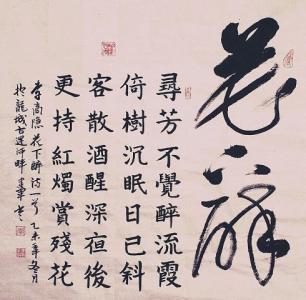 花下醉
尋芳不覺醉流霞
倚樹沉眠日已斜
客散酒醒深夜後
更持紅燭賞殘花
李商隱花下醉詩一首乙未年冬月
於龍城古運河畔書